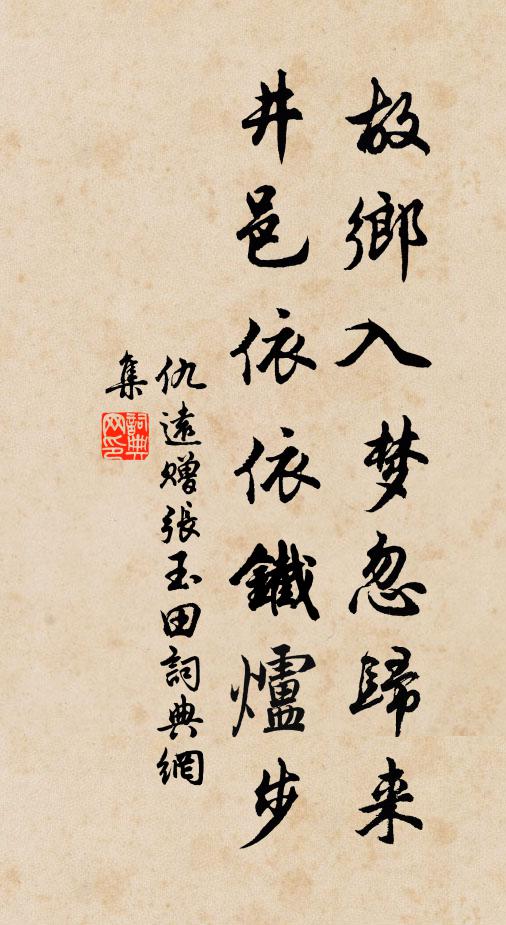 故鄉入梦忽歸来
井邑依依鐵爐步
仇遠贈張玉田詞典網
集
詞典网印